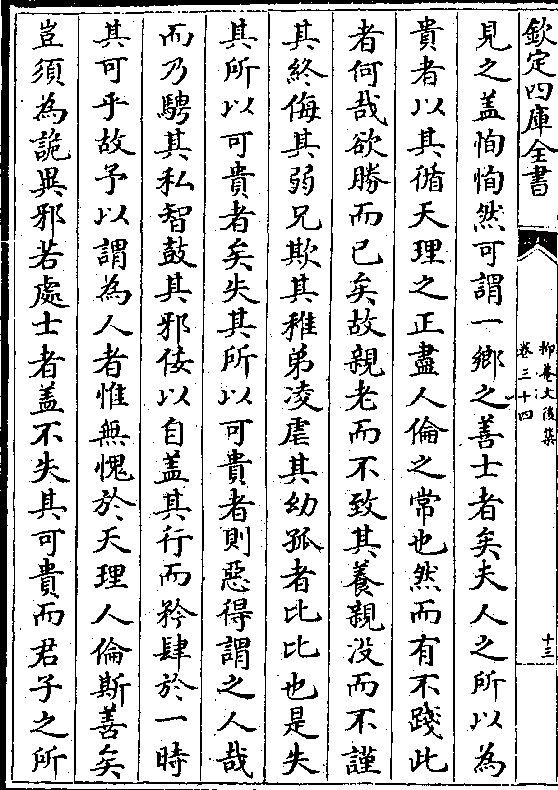 欽定四庫全書
抑菴文後集
卷三十四
十三
見之盖恂恂然可謂一鄉之善士者矣夫人之所以為
貴者以其循天理之正盡人倫之常也然而有不踐此
者何哉欲勝而已矣故親老而不致其養親没而不謹
其終侮其弱兄欺其稚弟凌虐其幼孤者比比也是失
其所以可貴者矣失其所以可貴者則惡得謂之人哉
而乃騁其私智鼓其邪佞以自盖其行而矜肆於一時
其可乎故予以謂為人者惟無愧於天理人倫斯善矣
豈須為詭異邪若處士者盖不失其可貴而君子之所